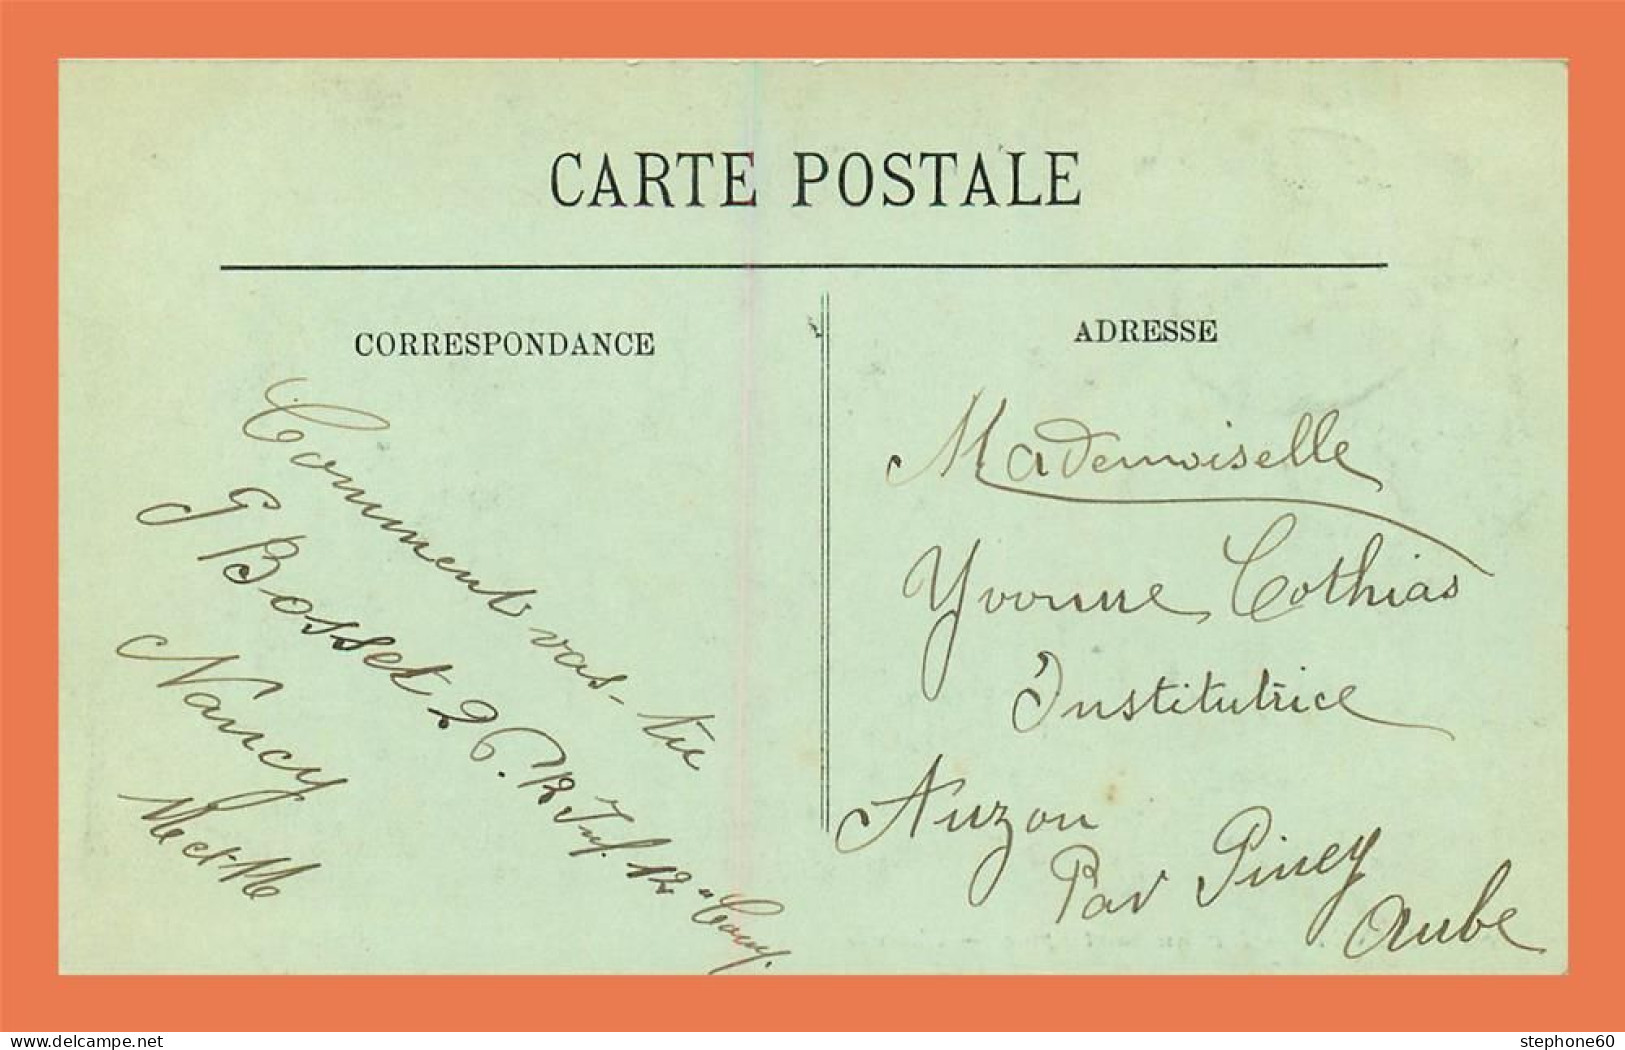 CARTE POSTALE
CORRESPONDANCE
Comment vas-tu
G Bosset 26. B Inf. 12e Comp.
Nancy
M et M
ADRESSE
Mademoiselle
Yvonne Cothias
Institutrice
Auzon
Par Piney
Aube
delcampe.net
stephone60